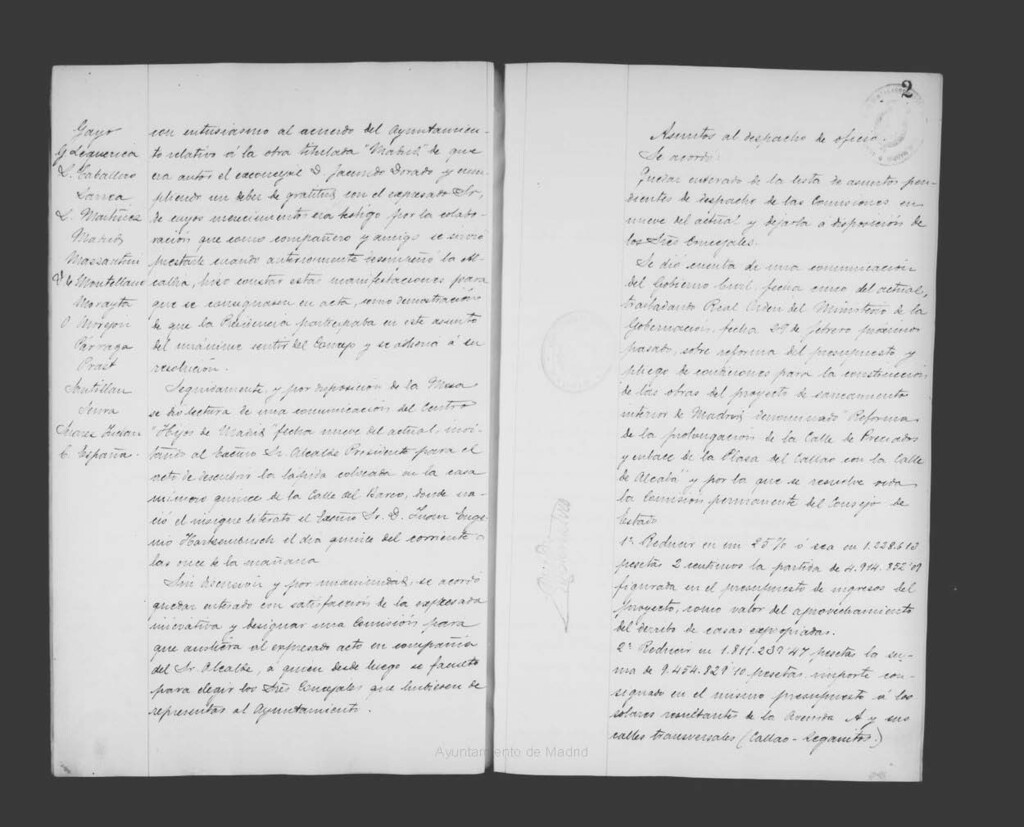 Gayo
G Lequerica
L. Caballero
Larrea
L. Martínez
Madrid
Massantini
D. C Montellano
Morayta
O Moreyon
Párraga
Prast
Santillan
Senra
Suarez Inclan
C. España.
con entusiasmo al acuerdo del Ayuntamien-
to relativo á la obra titulada "Madrid" de que
era autor el exconcejal D. Facundo Dorado y cum-
pliendo un deber de gratitud con el expresado Sr,
de cuyos merecimientos era testigo por la colabo-
ración que como compañero y amigo se sirvió
prestarle cuando anteriormente desempeñó la Al-
caldia, hizo constar estas manifestaciones para
que se consignasen en acta, como demostración
de que la Presidencia participaba en este asunto
del unánime sentir del Concejo y se adheria á su
resolución.
Seguidamente, y por disposición de la Mesa
se dió lectura de una comunicación del Centro
"Hijos de Madrid" fecha nueve del actual, invi-
tando al Excmo Sr. Alcalde Presidente para el
acto de descubrir la lápida colocada en la casa
número quince de la Calle del Barco, donde na-
ció el insigne literato el Excmo Sr. D. Juan Euge-
nio Hartzenbusch el dia quince del corriente a
las once de la mañana
Sin discusión y por unanimidad, se acordó
quedar enterado con satisfacción de la expresada
iniciativa y designar una Comisión para
que asistiera al expresado acto en compañia
del Sr Alcalde, a quien desde luego se facultó
para elegir los Sres Concejales que hubiesen de
representar al Ayuntamiento.
2
Asuntos al despacho de oficio.
Se acordó
Quedar enterado de la lista de asuntos pen-
dientes de despacho de las Comisiones en
nueve del actual y dejarla a disposición de
los Sres Concejales.
Se dió cuenta de una comunicación
del Gobierno Civil, fecha cinco del actual,
trasladando Real Orden del Ministerio de la
Gobernación, fecha 29 de febrero próximo
pasado, sobre reforma del presupuesto y
pliego de condiciones para la construcción
de las obras del proyecto de saneamiento
interior de Madrid, denominado "Reforma
de la prolongación de la Calle de Preciados
y enlace de la Plaza del Callao con la Calle
de Alcalá" y por la que se resuelve oida
la Comisión permanente del Consejo de
Estado
1º Reducir en un 25% ó sea en 1.228.613
pesetas 2 centimos la partida de 4.914.952'08
figurada en el presupuesto de ingresos del
proyecto, como valor del aprovechamiento
del derribo de casas expropiadas.
2º Reducir en 1.811.237'47 pesetas la su-
ma de 9.454.829'10 pesetas importe con-
signado en el mismo presupuesto á los
solares resultantes de la Avenida A y sus
calles transversales (Callao - Leganitos.)
Ayuntamiento de Madrid